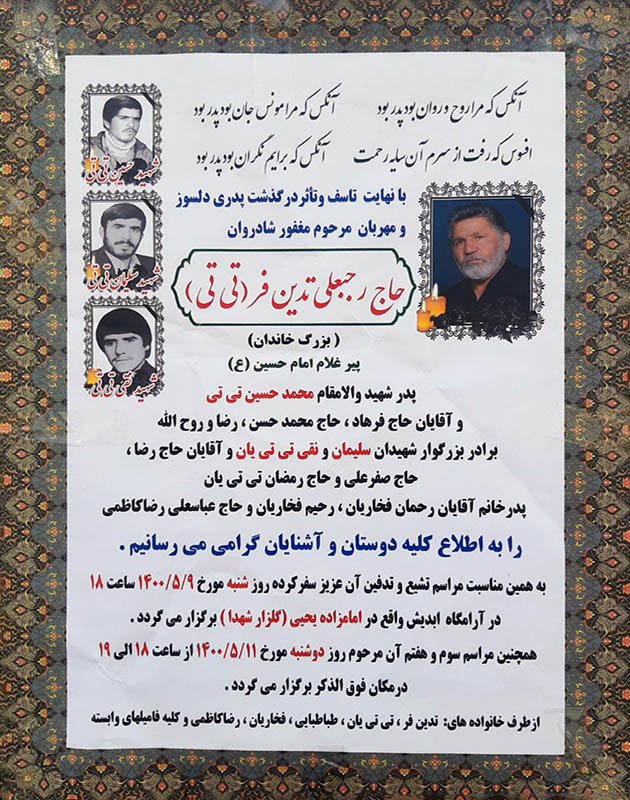 آنکس که مرا روح و روان بود پدر بود آنکس که مرا مونس جان بود پدر بود
افسوس که رفت از سرم آن سایه رحمت آنکس که برایم نگران بود پدر بود
شهید حسین تی تی
شهید سلیمان تی تی
شهید نقی تی تی
با نهایت تاسف وتأثر درگذشت پدری دلسوز
و مهربان مرحوم مغفور شادروان
حاج رجبعلی تدین فر (تی تی)
( بزرگ خاندان )
پیر غلام امام حسین (ع)
پدر شهید والامقام محمد حسین تی تی
و آقایان حاج فرهاد ، حاج محمد حسن ، رضا و روح الله
برادر بزرگوار شهیدان سلیمان و نقی تی تی یان و آقایان حاج رضا ،
حاج صفرعلی و حاج رمضان تی تی یان
پدرخانم آقایان رحمان فخاریان ، رحیم فخاریان و حاج عباسعلی رضاکاظمی
را به اطلاع کلیه دوستان و آشنایان گرامی می رسانیم .
به همین مناسبت مراسم تشیع و تدفین آن عزیز سفرکرده روز شنبه مورخ ۱۴۰۰/۵/۹ ساعت ۱۸
در آرامگاه ابدیش واقع در امامزاده یحیی (گلزار شهدا ) برگزار می گردد .
همچنین مراسم سوم و هفتم آن مرحوم روز دوشنبه مورخ ۱۴۰۰/۵/۱۱ از ساعت ۱۸ الی ۱۹
درمکان فوق الذکر برگزار می گردد .
ازطرف خانواده های: تدین فر ، تی تی یان ، طباطبایی ، فخاریان ، رضاکاظمی و کلیه فامیلهای وابسته